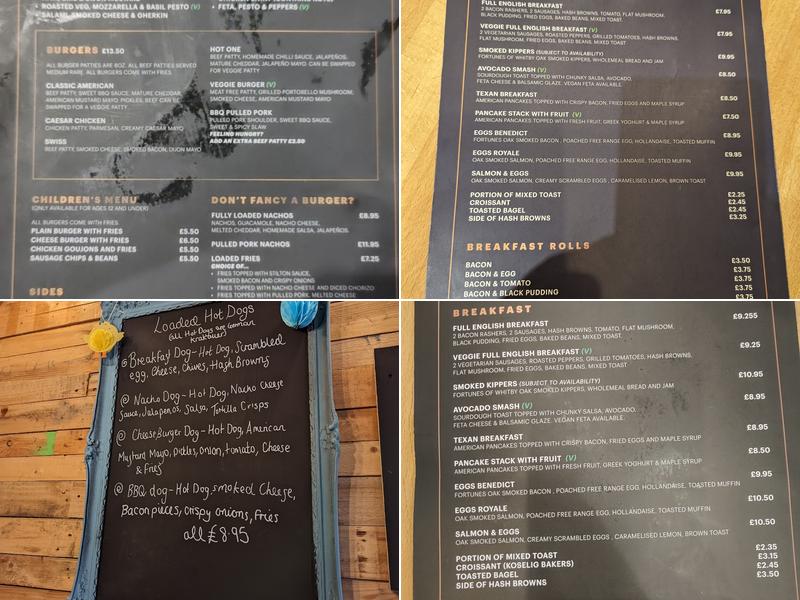 • ROASTED VEG, MOZZARELLA & BASIL PESTO (V)
SALAMI, SMOKED CHEESE & GHERKIN
• FETA, PESTO & PEPPERS (V)
BURGERS £13.50
ALL BURGER PATTIES ARE 8OZ. ALL BEEF PATTIES SERVED
MEDIUM RARE. ALL BURGERS COME WITH FRIES.
CLASSIC AMERICAN
BEEF PATTY, SWEET BBQ SAUCE, MATURE CHEDDAR,
AMERICAN MUSTARD MAYO, PICKLES. BEEF CAN BE
SWAPPED FOR A VEGGIE PATTY.
CAESAR CHICKEN
CHICKEN PATTY, PARMESAN, CREAMY CAESAR MAYO
SWISS
BEEF PATTY, SMOKED CHEESE, SMOKED BACON, DIJON MAYO
HOT ONE
BEEF PATTY, HOMEMADE CHILLI SAUCE, JALAPEÑOS,
MATURE CHEDDAR, JALAPEÑO MAYO. CAN BE SWAPPED
FOR VEGGIE PATTY
VEGGIE BURGER (V)
MEAT FREE PATTY, GRILLED PORTOBELLO MUSHROOM,
SMOKED CHEESE, AMERICAN MUSTARD MAYO
BBQ PULLED PORK
PULLED PORK SHOULDER, SWEET BBQ SAUCE,
SWEET & SPICY SLAW
FEELING HUNGRY?
ADD AN EXTRA BEEF PATTY £3.50
CHILDREN'S MENU
(ONLY AVAILABLE FOR AGES 12 AND UNDER)
ALL BURGERS COME WITH FRIES
PLAIN BURGER WITH FRIES £5.50
CHEESE BURGER WITH FRIES £6.50
CHICKEN GOUJONS AND FRIES £5.50
SAUSAGE CHIPS & BEANS £5.50
SIDES
DON'T FANCY A BURGER?
FULLY LOADED NACHOS £8.95
NACHOS, GUACAMOLE, NACHO CHEESE,
MELTED CHEDDAR, HOMEMADE SALSA, JALAPEÑOS.
PULLED PORK NACHOS £11.95
LOADED FRIES £7.25
CHOICE OF...
• FRIES TOPPED WITH STILTON SAUCE,
SMOKED BACON AND CRISPY ONIONS
• FRIES TOPPED WITH NACHO CHEESE AND DICED CHORIZO
• FRIES TOPPED WITH PULLED PORK, MELTED CHEESE
FULL ENGLISH BREAKFAST £7.95
2 BACON RASHERS, 2 SAUSAGES, HASH BROWNS, TOMATO, FLAT MUSHROOM,
BLACK PUDDING, FRIED EGGS, BAKED BEANS, MIXED TOAST.
VEGGIE FULL ENGLISH BREAKFAST (V) £7.95
2 VEGETARIAN SAUSAGES, ROASTED PEPPERS, GRILLED TOMATOES, HASH BROWNS,
FLAT MUSHROOM, FRIED EGGS, BAKED BEANS, MIXED TOAST.
SMOKED KIPPERS (SUBJECT TO AVAILABILITY) £9.95
FORTUNES OF WHITBY OAK SMOKED KIPPERS, WHOLEMEAL BREAD AND JAM
AVOCADO SMASH (V) £8.50
SOURDOUGH TOAST TOPPED WITH CHUNKY SALSA, AVOCADO,
FETA CHEESE & BALSAMIC GLAZE. VEGAN FETA AVAILABLE.
TEXAN BREAKFAST £8.50
AMERICAN PANCAKES TOPPED WITH CRISPY BACON, FRIED EGGS AND MAPLE SYRUP
PANCAKE STACK WITH FRUIT (V) £7.50
AMERICAN PANCAKES TOPPED WITH FRESH FRUIT, GREEK YOGHURT & MAPLE SYRUP
EGGS BENEDICT £8.95
FORTUNES OAK SMOKED BACON , POACHED FREE RANGE EGG, HOLLANDAISE, TOASTED MUFFIN
EGGS ROYALE £9.95
OAK SMOKED SALMON, POACHED FREE RANGE EGG, HOLLANDAISE, TOASTED MUFFIN
SALMON & EGGS £9.95
OAK SMOKED SALMON, CREAMY SCRAMBLED EGGS , CARAMELISED LEMON, BROWN TOAST
PORTION OF MIXED TOAST £2.25
CROISSANT £2.45
TOASTED BAGEL £2.45
SIDE OF HASH BROWNS £3.25
BREAKFAST ROLLS
BACON £3.50
BACON & EGG £3.75
BACON & TOMATO £3.75
BACON & BLACK PUDDING £3.75
£3.75
Loaded Hot Dogs
(all Hot Dogs are German
@ Breakfast Dog - Hot Dog, Scrambled
egg, Cheese, Chives, Hash Browns
@ Nacho Dog - Hot Dog, Nacho Cheese
Sauce, Jalapenos, Salsa, Tortilla Crisps
@ Cheese Burger Dog - Hot Dog, American
Mustard Mayo, Pickles, onion, tomato, Cheese
& Fries
@ BBQ dog - Hot Dog, smoked Cheese,
Bacon pieces, crispy onions, fries
all £8.95
BREAKFAST
FULL ENGLISH BREAKFAST £9.255
2 BACON RASHERS, 2 SAUSAGES, HASH BROWNS, TOMATO, FLAT MUSHROOM,
BLACK PUDDING, FRIED EGGS, BAKED BEANS, MIXED TOAST.
VEGGIE FULL ENGLISH BREAKFAST (V) £9.25
2 VEGETARIAN SAUSAGES, ROASTED PEPPERS, GRILLED TOMATOES, HASH BROWNS,
FLAT MUSHROOM, FRIED EGGS, BAKED BEANS, MIXED TOAST.
SMOKED KIPPERS (SUBJECT TO AVAILABILITY) £10.95
FORTUNES OF WHITBY OAK SMOKED KIPPERS, WHOLEMEAL BREAD AND JAM
AVOCADO SMASH (V) £8.95
SOURDOUGH TOAST TOPPED WITH CHUNKY SALSA, AVOCADO,
FETA CHEESE & BALSAMIC GLAZE. VEGAN FETA AVAILABLE.
TEXAN BREAKFAST £8.95
AMERICAN PANCAKES TOPPED WITH CRISPY BACON, FRIED EGGS AND MAPLE SYRUP
PANCAKE STACK WITH FRUIT (V) £8.50
AMERICAN PANCAKES TOPPED WITH FRESH FRUIT, GREEK YOGHURT & MAPLE SYRUP
EGGS BENEDICT £9.95
FORTUNES OAK SMOKED BACON , POACHED FREE RANGE EGG, HOLLANDAISE, TOASTED MUFFIN
EGGS ROYALE £10.50
OAK SMOKED SALMON, POACHED FREE RANGE EGG, HOLLANDAISE, TOASTED MUFFIN
SALMON & EGGS £10.50
OAK SMOKED SALMON, CREAMY SCRAMBLED EGGS , CARAMELISED LEMON, BROWN TOAST
PORTION OF MIXED TOAST £2.35
CROISSANT (KOSELIG BAKERS) £3.15
TOASTED BAGEL £2.45
SIDE OF HASH BROWNS £3.50